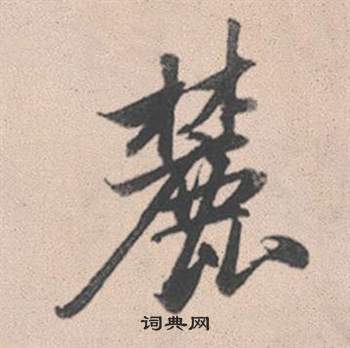 麓
词典网